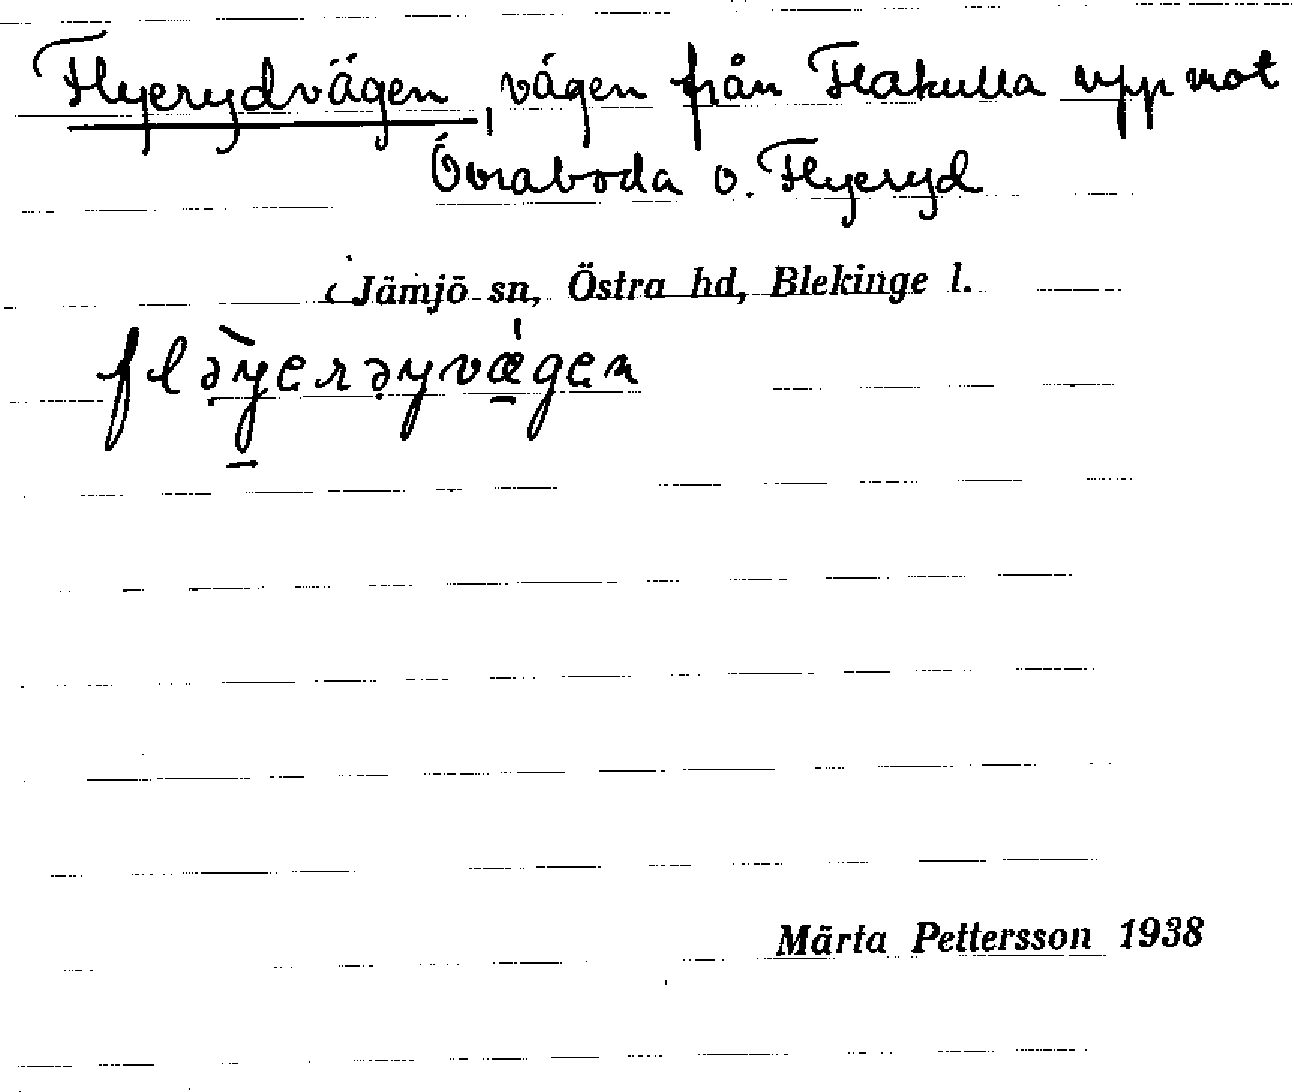 Flyerydvägen, vägen från Flakulla upp mot
Övraboda o. Flyeryd
i Jämjö sn, Östra hd, Blekinge l.
Märta Pettersson 1938